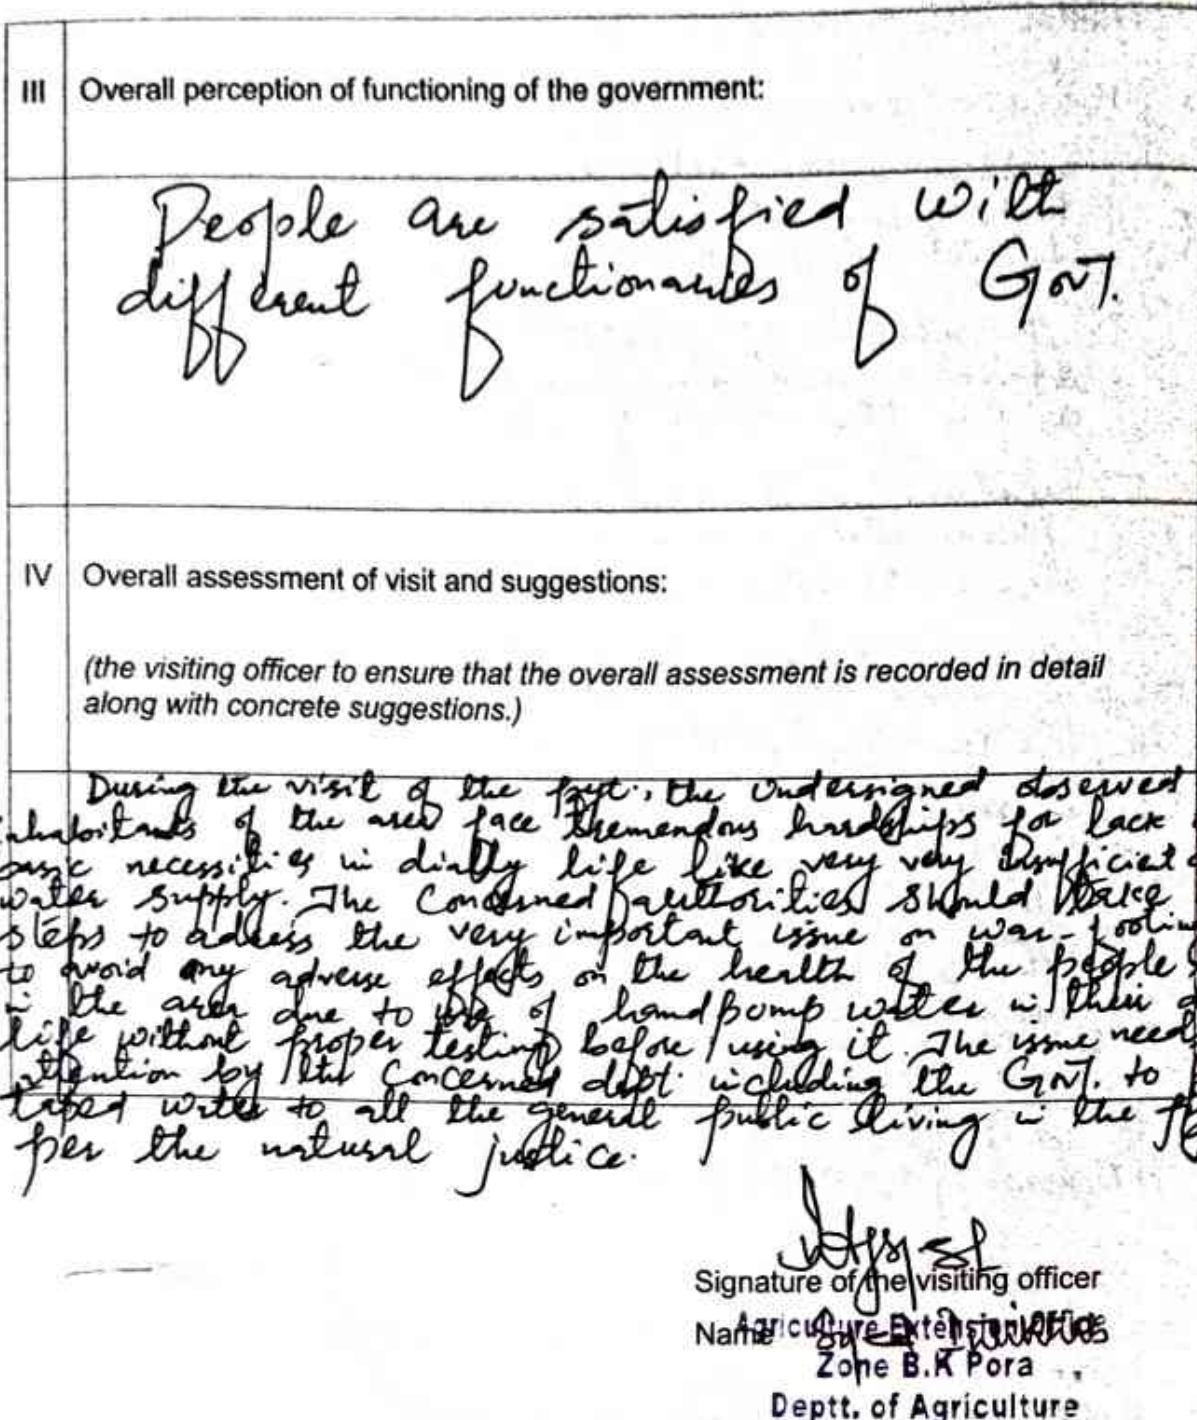 III Overall perception of functioning of the government:
People are satisfied with
different functionaries of Govt.
IV Overall assessment of visit and suggestions:
(the visiting officer to ensure that the overall assessment is recorded in detail
along with concrete suggestions.)
During the visit of the pyt., the undersigned observed
inhabitants of the area face tremendous hardships for lack
basic necessities in dially life like very very insufficient
water supply. The Concerned authorities should take
steps to adress the very important issue on war-footing
to avoid any adverse effects on the health of the people
in the area due to use of handpump water in their
life without proper testing before using it. The issue needs
attention by the Concerned deptt. including the Govt. to
taped water to all the general public living in the
per the natural justice.
Signature of the visiting officer
Name Syed
Agriculture Extension Officer
Zone B.K Pora
Deptt. of Agriculture